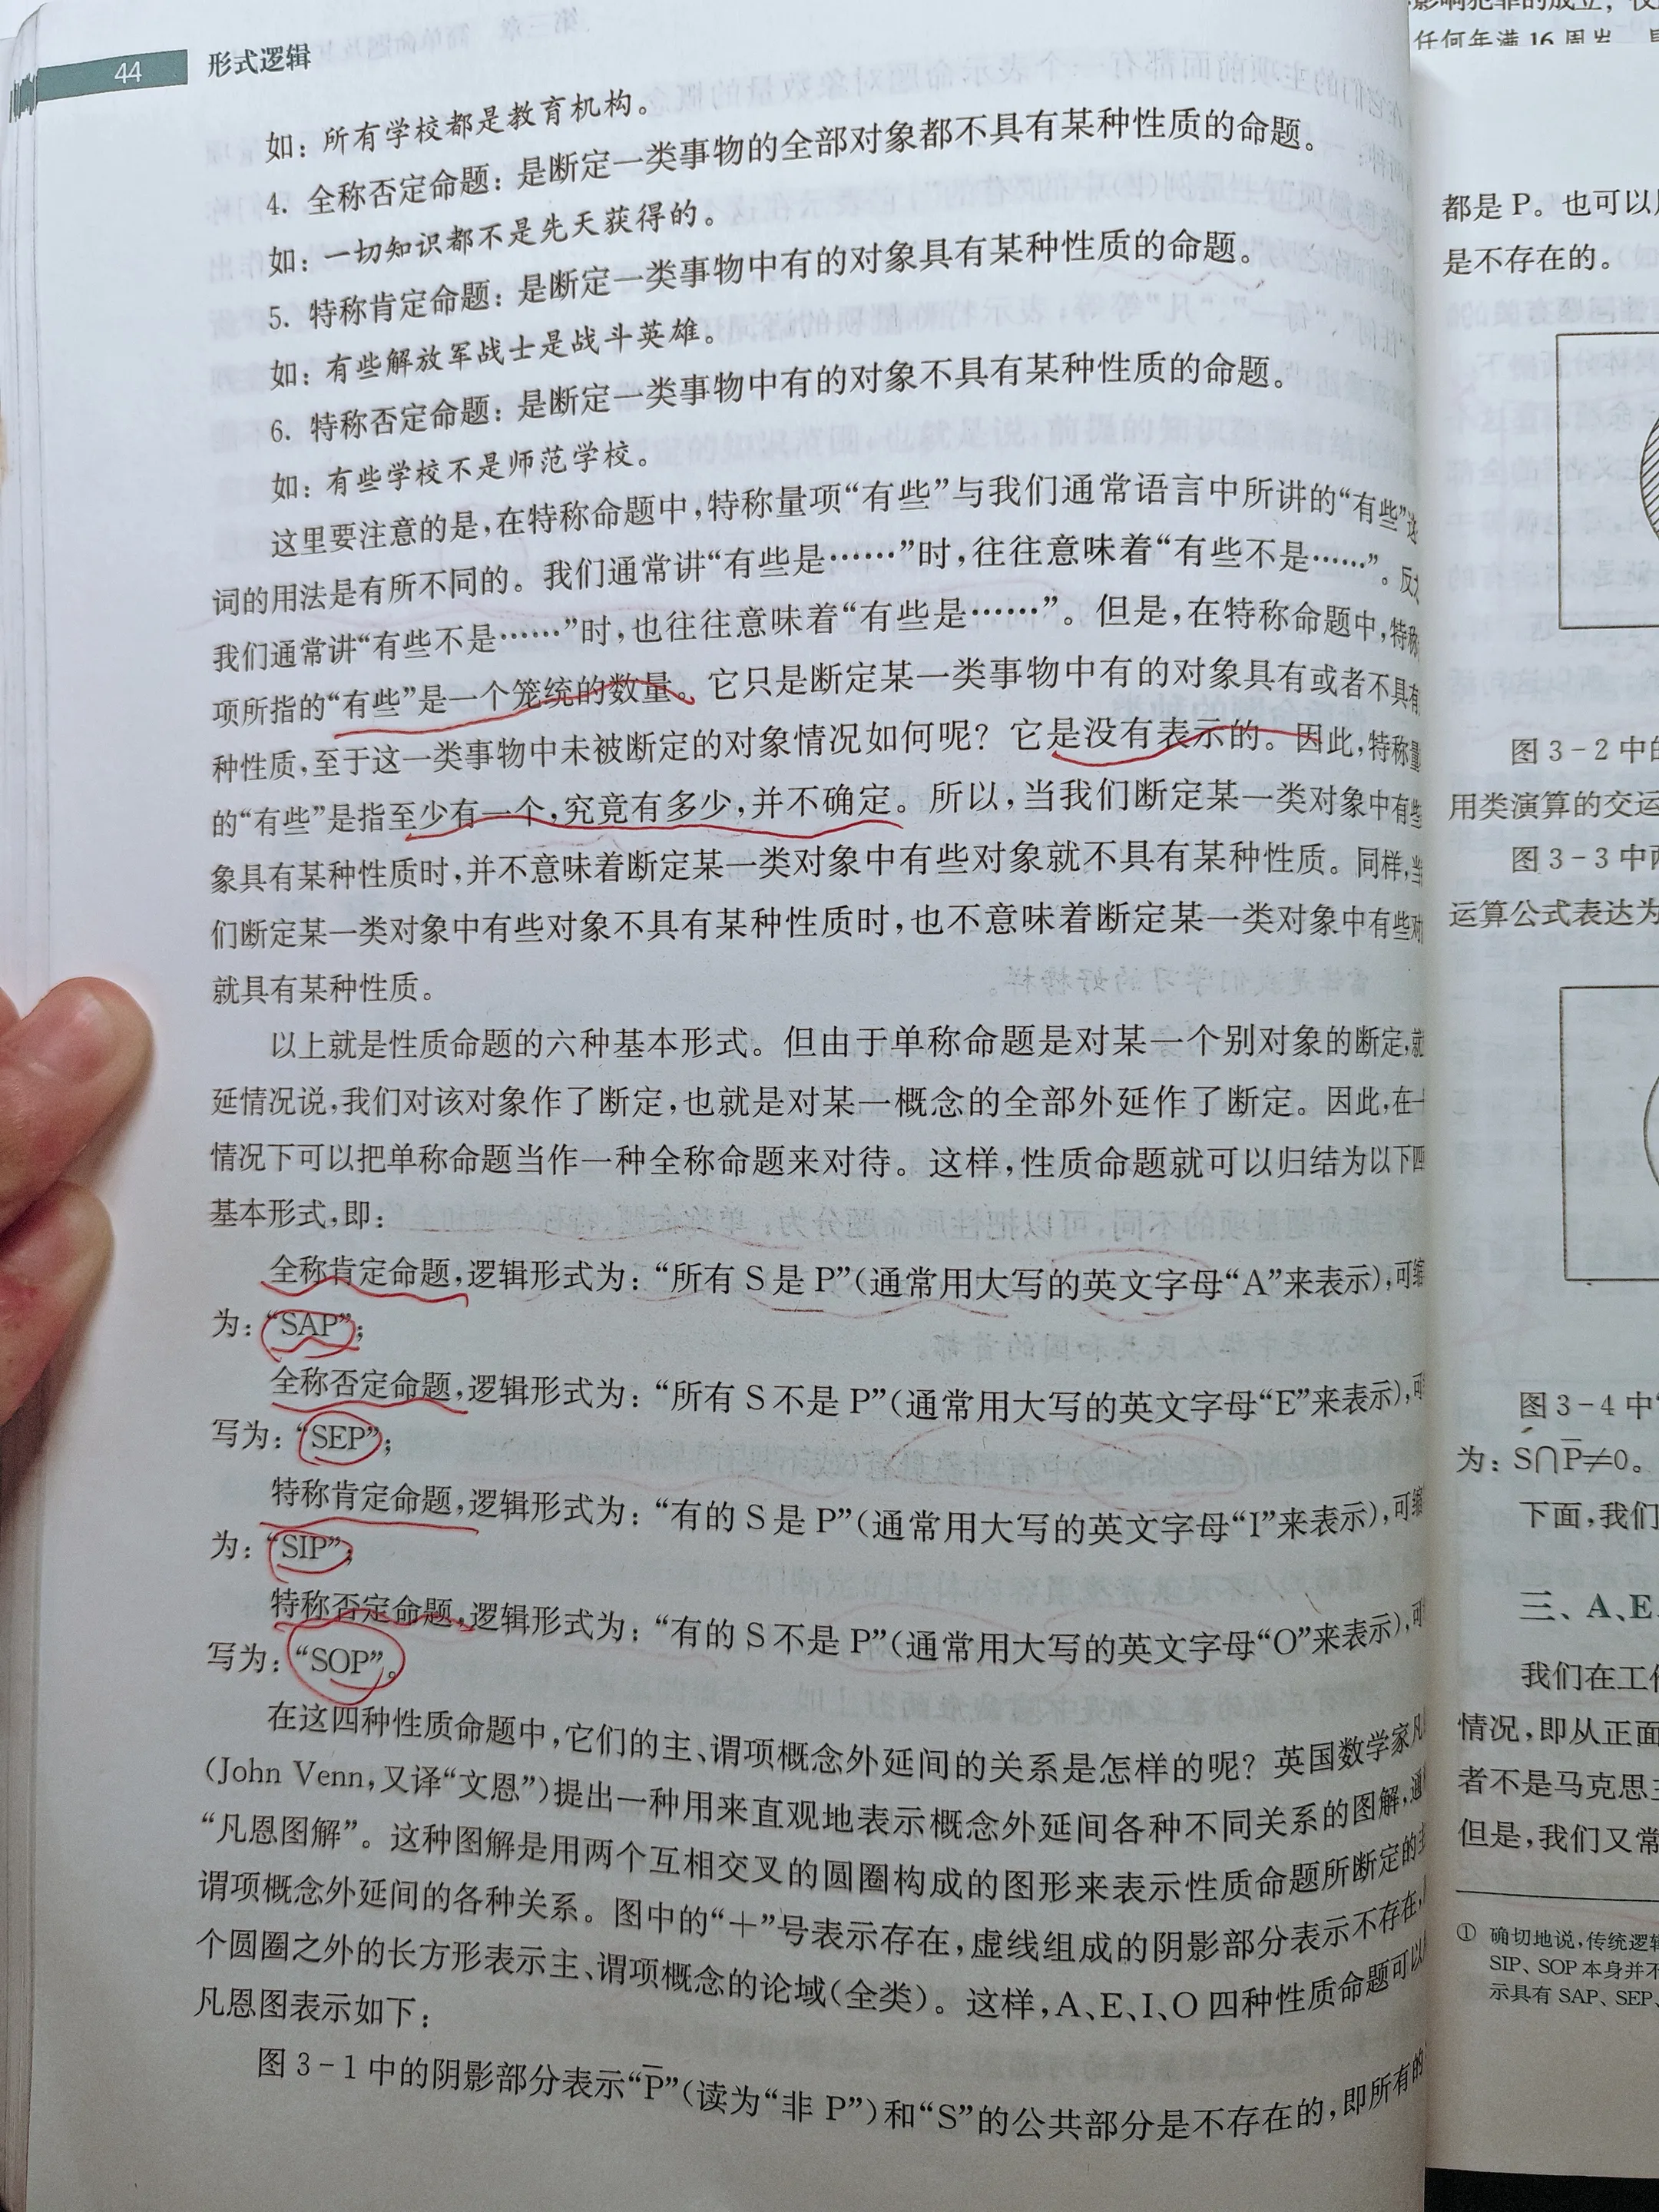 44 形式逻辑
如：所有学校都是教育机构。
4. 全称否定命题：是断定一类事物的全部对象都不具有某种性质的命题。
如：一切知识都不是先天获得的。
5. 特称肯定命题：是断定一类事物中有的对象具有某种性质的命题。
如：有些解放军战士是战斗英雄。
6. 特称否定命题：是断定一类事物中有的对象不具有某种性质的命题。
如：有些学校不是师范学校。
这里要注意的是，在特称命题中，特称量项“有些”与我们通常语言中所讲的“有些”这
词的用法是有所不同的。我们通常讲“有些是……”时，往往意味着“有些不是……”。反
我们通常讲“有些不是……”时，也往往意味着“有些是……”。但是，在特称命题中，特称
项所指的“有些”是一个笼统的数量。它只是断定某一类事物中有的对象具有或者不具有
种性质，至于这一类事物中未被断定的对象情况如何呢？它是没有表示的。因此，特称量
的“有些”是指至少有一个，究竟有多少，并不确定。所以，当我们断定某一类对象中有些
象具有某种性质时，并不意味着断定某一类对象中有些对象就不具有某种性质。同样，当
们断定某一类对象中有些对象不具有某种性质时，也不意味着断定某一类对象中有些对
就具有某种性质。
以上就是性质命题的六种基本形式。但由于单称命题是对某一个别对象的断定，就
延情况说，我们对该对象作了断定，也就是对某一概念的全部外延作了断定。因此，在一
情况下可以把单称命题当作一种全称命题来对待。这样，性质命题就可以归结为以下四
基本形式，即：
全称肯定命题，逻辑形式为：“所有 S 是 P”（通常用大写的英文字母“A”来表示），可缩
为：“SAP”；
全称否定命题，逻辑形式为：“所有 S 不是 P”（通常用大写的英文字母“E”来表示），可
写为：“SEP”；
特称肯定命题，逻辑形式为：“有的 S 是 P”（通常用大写的英文字母“I”来表示），可缩
为：“SIP”；
特称否定命题，逻辑形式为：“有的 S 不是 P”（通常用大写的英文字母“O”来表示），可
写为：“SOP”。
在这四种性质命题中，它们的主、谓项概念外延间的关系是怎样的呢？英国数学家凡
（John Venn，又译“文恩”）提出一种用来直观地表示概念外延间各种不同关系的图解，通
“凡恩图解”。这种图解是用两个互相交叉的圆圈构成的图形来表示性质命题所断定的主
谓项概念外延间的各种关系。图中的“＋”号表示存在，虚线组成的阴影部分表示不存在，
个圆圈之外的长方形表示主、谓项概念的论域（全类）。这样，A、E、I、O 四种性质命题可以
凡恩图表示如下：
图 3-1 中的阴影部分表示“P̅”（读为“非 P”）和“S”的公共部分是不存在的，即所有的
影响犯罪的成立，
任何年满 16 周岁
都是 P。也可以
是不存在的。
图 3-2 中的
用类演算的交运
图 3-3 中
运算公式表达为
图 3-4 中
为：S∩P̅≠0。
下面，我们
三、A、E
我们在工作
情况，即从正面
者不是马克思主
但是，我们又常
① 确切地说，传统逻辑
SIP、SOP 本身并不
示具有 SAP、SEP、